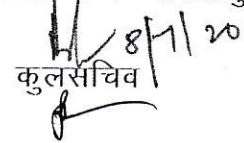 8/7/20
कुलसचिव